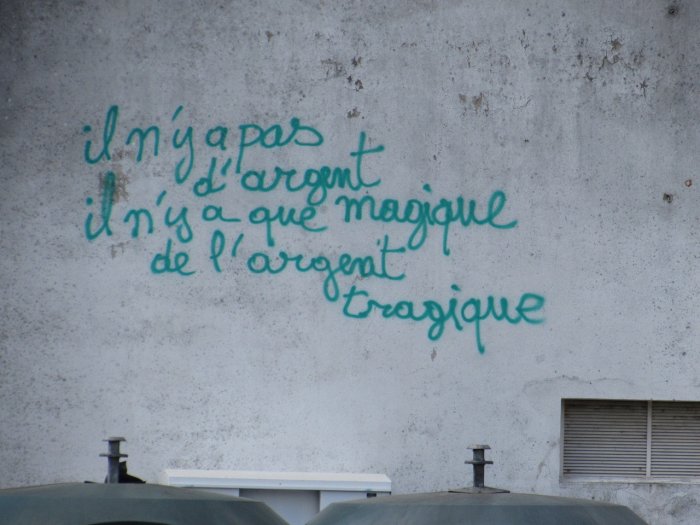 il n'y a pas
d'argent
il n'y a que magique
de l'argent
tragique